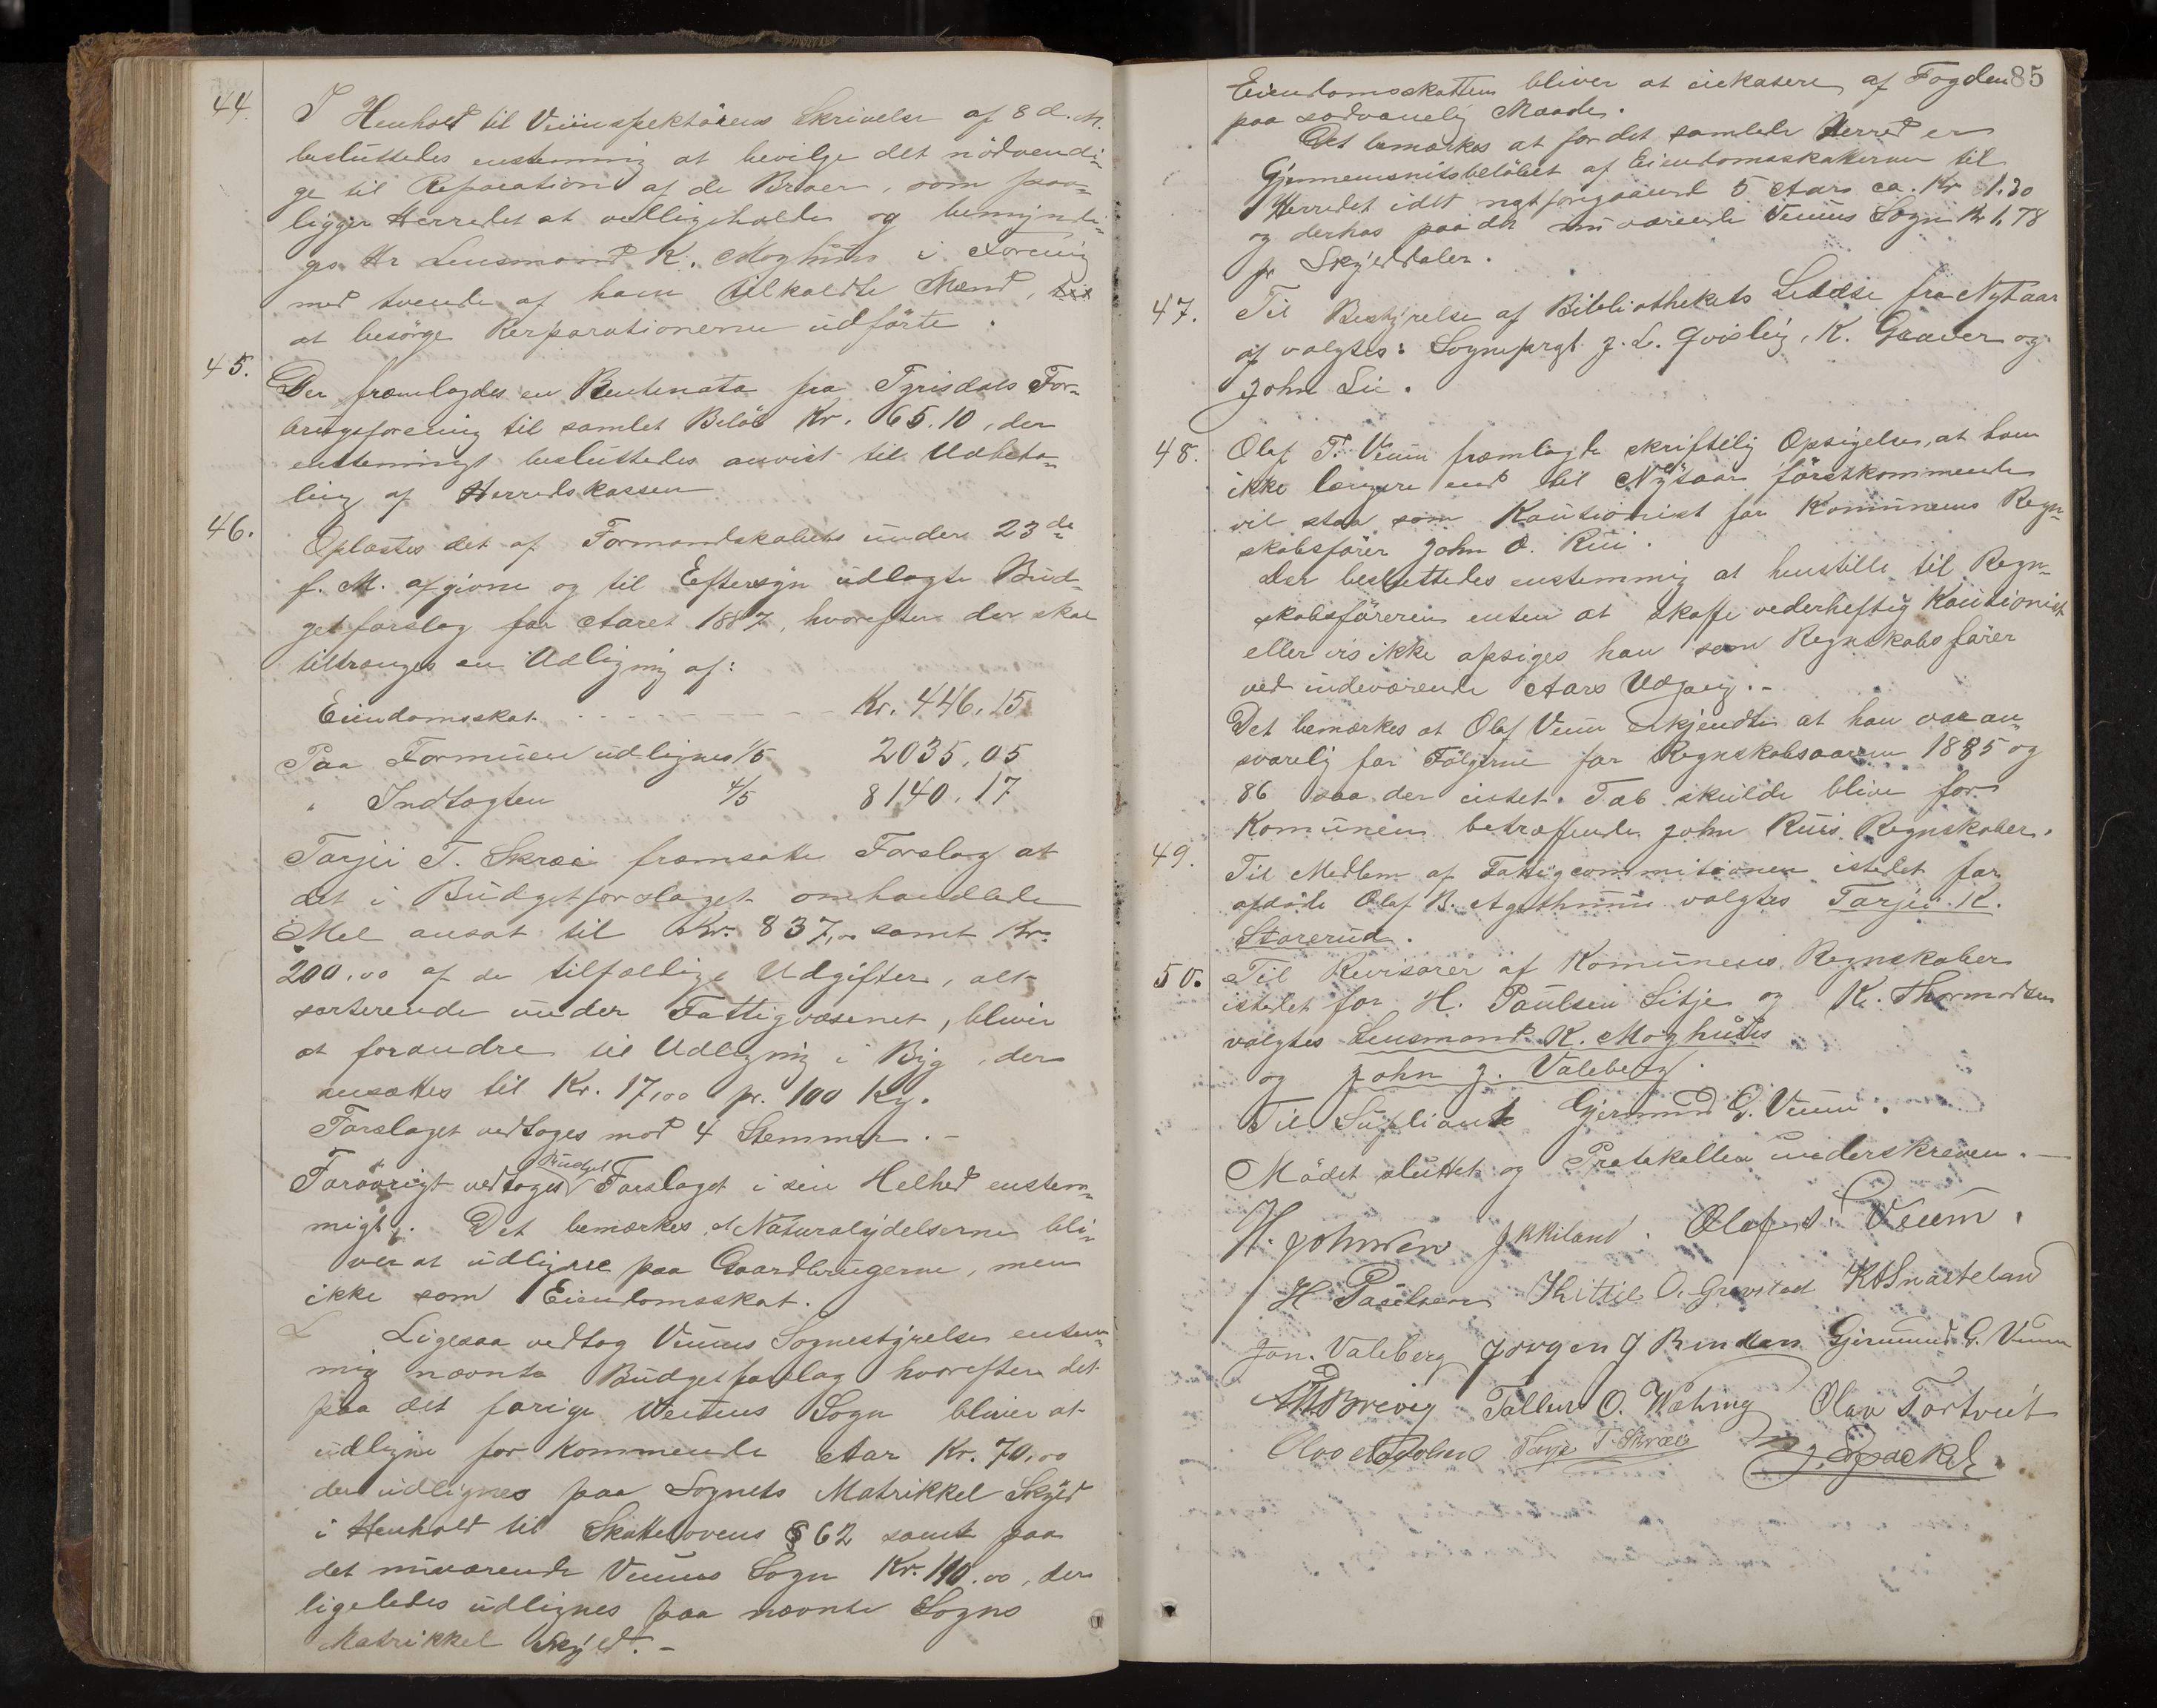 44.
I Henhold til Veiinspektörens Skrivelse af 8 d. M.
besluttedes enstemmig at bevilge det nödvendi-
ge til Reparation af de Broer, som paa-
ligger Herredet at vedligeholde og bemyndi-
ges Hr Lensmand K. Moghuus i Forening
med tvende af ham tilkaldte Mænd,
at besörge Reparationerne udförte.
45.
Der fremlagdes en Rentenota fra Tyrisdals For-
brugsforening til samlet Belöb Kr. 65.10, der
enstemmigt besluttedes anvist til Udbeta-
ling af Herredskassen
46.
Oplæstes det af Formandskabets under 23de
f. M. afgivne og til Eftersyn udlagte Bud-
getforslag for Aaret 1887, hvorefter der skal
tiltrænges en Udligning af:
Eiendomsskat - - - - - - - Kr. 446.15
Paa Formuen udlignes 1/5 2035.05
" Indtægten 4/5 8140.17
Tarjei T. Skræi fremsatte Forslag at
det i Budgetforslaget omhandlede
Mel ansat til Kr. 837,00 samt Kr.
200.00 af de tilfældige Udgifter, alt
sorterende under Fattigvæsenet, bliver
at forandre til Udligning i Byg, der
ansættes til Kr. 17,00 pr. 100 Kg.
Forslaget vedtoges mod 4 Stemmer. -
Forövrigt vedtoges Budget Forslaget i sin Helhed enstem-
migt. Det bemærkes at Naturalydelserne bli-
ver at udligne paa Gaardbrugerne, men
ikke som Eiendomsskat.
Ligesaa vedtog Veums Sognestyrelse enstem-
mig nævnte Budgetforslag hvorefter det
paa det forige Veums Sogn bliver at
udligne for kommende Aar Kr. 70,00
der udlignes paa Sognets Matrikkel Skyld
i Henhold til Skattelovens § 62 samt paa
det nuværende Veums Sogn Kr. 110.00, der
ligeledes udlignes paa nævnte Sogns
Matrikkel Skyld. -
85
Eiendomsskatten bliver at inkasere af Fogden
paa sedvanelig Maade.
Det bemærkes at for det samlede Herred er
Gjennemsnitsbelöbet af Eiendomsskatterne til
Herredet idet næstforegaaende 5 Aars ca. Kr 1.30
og derhos paa det nuværende Veums Sogn Kr 1.78
pr Skylddaler.
47.
Til Bestyrelse af Bibliothekets Ledelse fra Nytaar
af valgtes: Sogneprest J. L. Qvisling, K. Graver og
John Lie.
48.
Olaf T. Veum fremlagde skriftelig Opsigelse, at han
ikke længere end til Nytaar förstkommende
vil staa som Kautionist for Komunens Regn-
skabsförer John O. Rui.
Der besluttedes enstemmig at henstille til Regn-
skabsföreren enten at skaffe vederheftig Kautionist
eller vis ikke opsiges han som Regnskabsförer
ved indeværende Aars Udgang. -
Det bemærkes at Olaf Veum erkjendte at han var an-
svarlig for Fölgerne for Regnskabsaarene 1885 og
86 saa der intet Tab skulde blive for
Komunen betræffende John Ruis Regnskaber.
49.
Til Medlem af Fattigcommitionen istedet for
afdöde Olaf B. Agethuun valgtes Tarjei K.
Storerud.
50.
Til Revisorer af Komunens Regnskaber
istedet for H. Paulsen Litje og K. Thormodsen
valgtes Lensmand K. Moghuus
og John J. Valeberg.
Til Supliant Gjermund G. Veum.
Mödet sluttet og Protokollen underskreven. -
H. Johnsen J Kkiland. Olaf T. Veum.
H Paulsen Kittil O. Grovstad K A Snarteland
Jon. Valeberg Jörgen J Rinden Gjermund G. Veum
Brevig Tallev O. Wæhing Olav Tortveit
Tarje T. Skræi